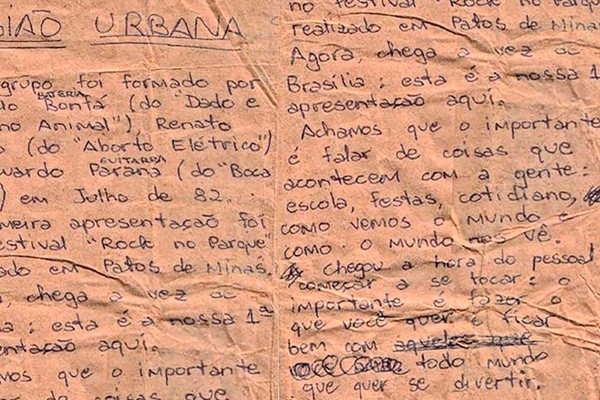 GIÃO URBANA
grupo foi formado por
BATERIA
lo Bonfá (do "Dado e
no Animal"), Renato
a (do "Aborto Elétrico")
GUITARRA
uardo Paraná (do "Boca
) em Julho de 82.
meira apresentação foi
estival "Rock no Parque"
ado em Patos de Minas.
, chega a vez de
ia: esta é a nossa 1ª
entação aqui.
mos que o importante
de coisas que
no festival "Rock no Parque
realizado em Patos de Minas
Agora, chega a vez de
Brasília: esta é a nossa 1ª
apresentação aqui.
Achamos que o importante
é falar de coisas que
acontecem com a gente:
escola, festas, cotidiano,
como vemos o mundo e
como o mundo nos vê.
Chegou a hora do pessoal
começar a se tocar: o
importante é fazer o
que você quer e ficar
bem com aqueles que
todo mundo
que quer se divertir.